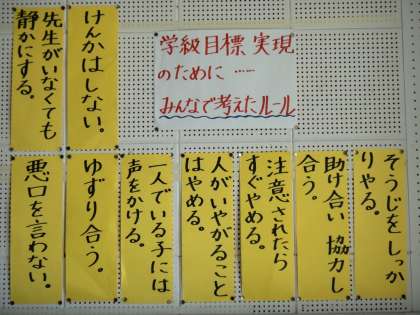 学級目標 実現
のために……
みんなで考えたルール
けんかはしない。
先生がいなくても
静かにする。
そうじを しっか
りやる。
助け合い 協力し
合う。
注意されたら
すぐやめる。
人がいやがること
はやめる。
一人でいる子には
声をかける。
ゆずり合う。
悪口を言わない。